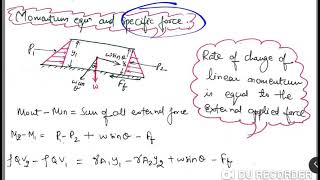 Momentum eqn and specific force
P₁
y₁
wsinθ
P₂
w
Ff
Rate of change of
linear momentum
is equal to the
external applied force
Mout - Min = Sum of all external force
M₂-M₁ = P₁-P₂ + wsinθ - Ff
ρQV₂ - ρQV₁ = γA₁y₁ - γA₂y₂ + wsinθ - Ff
DU RECORDER